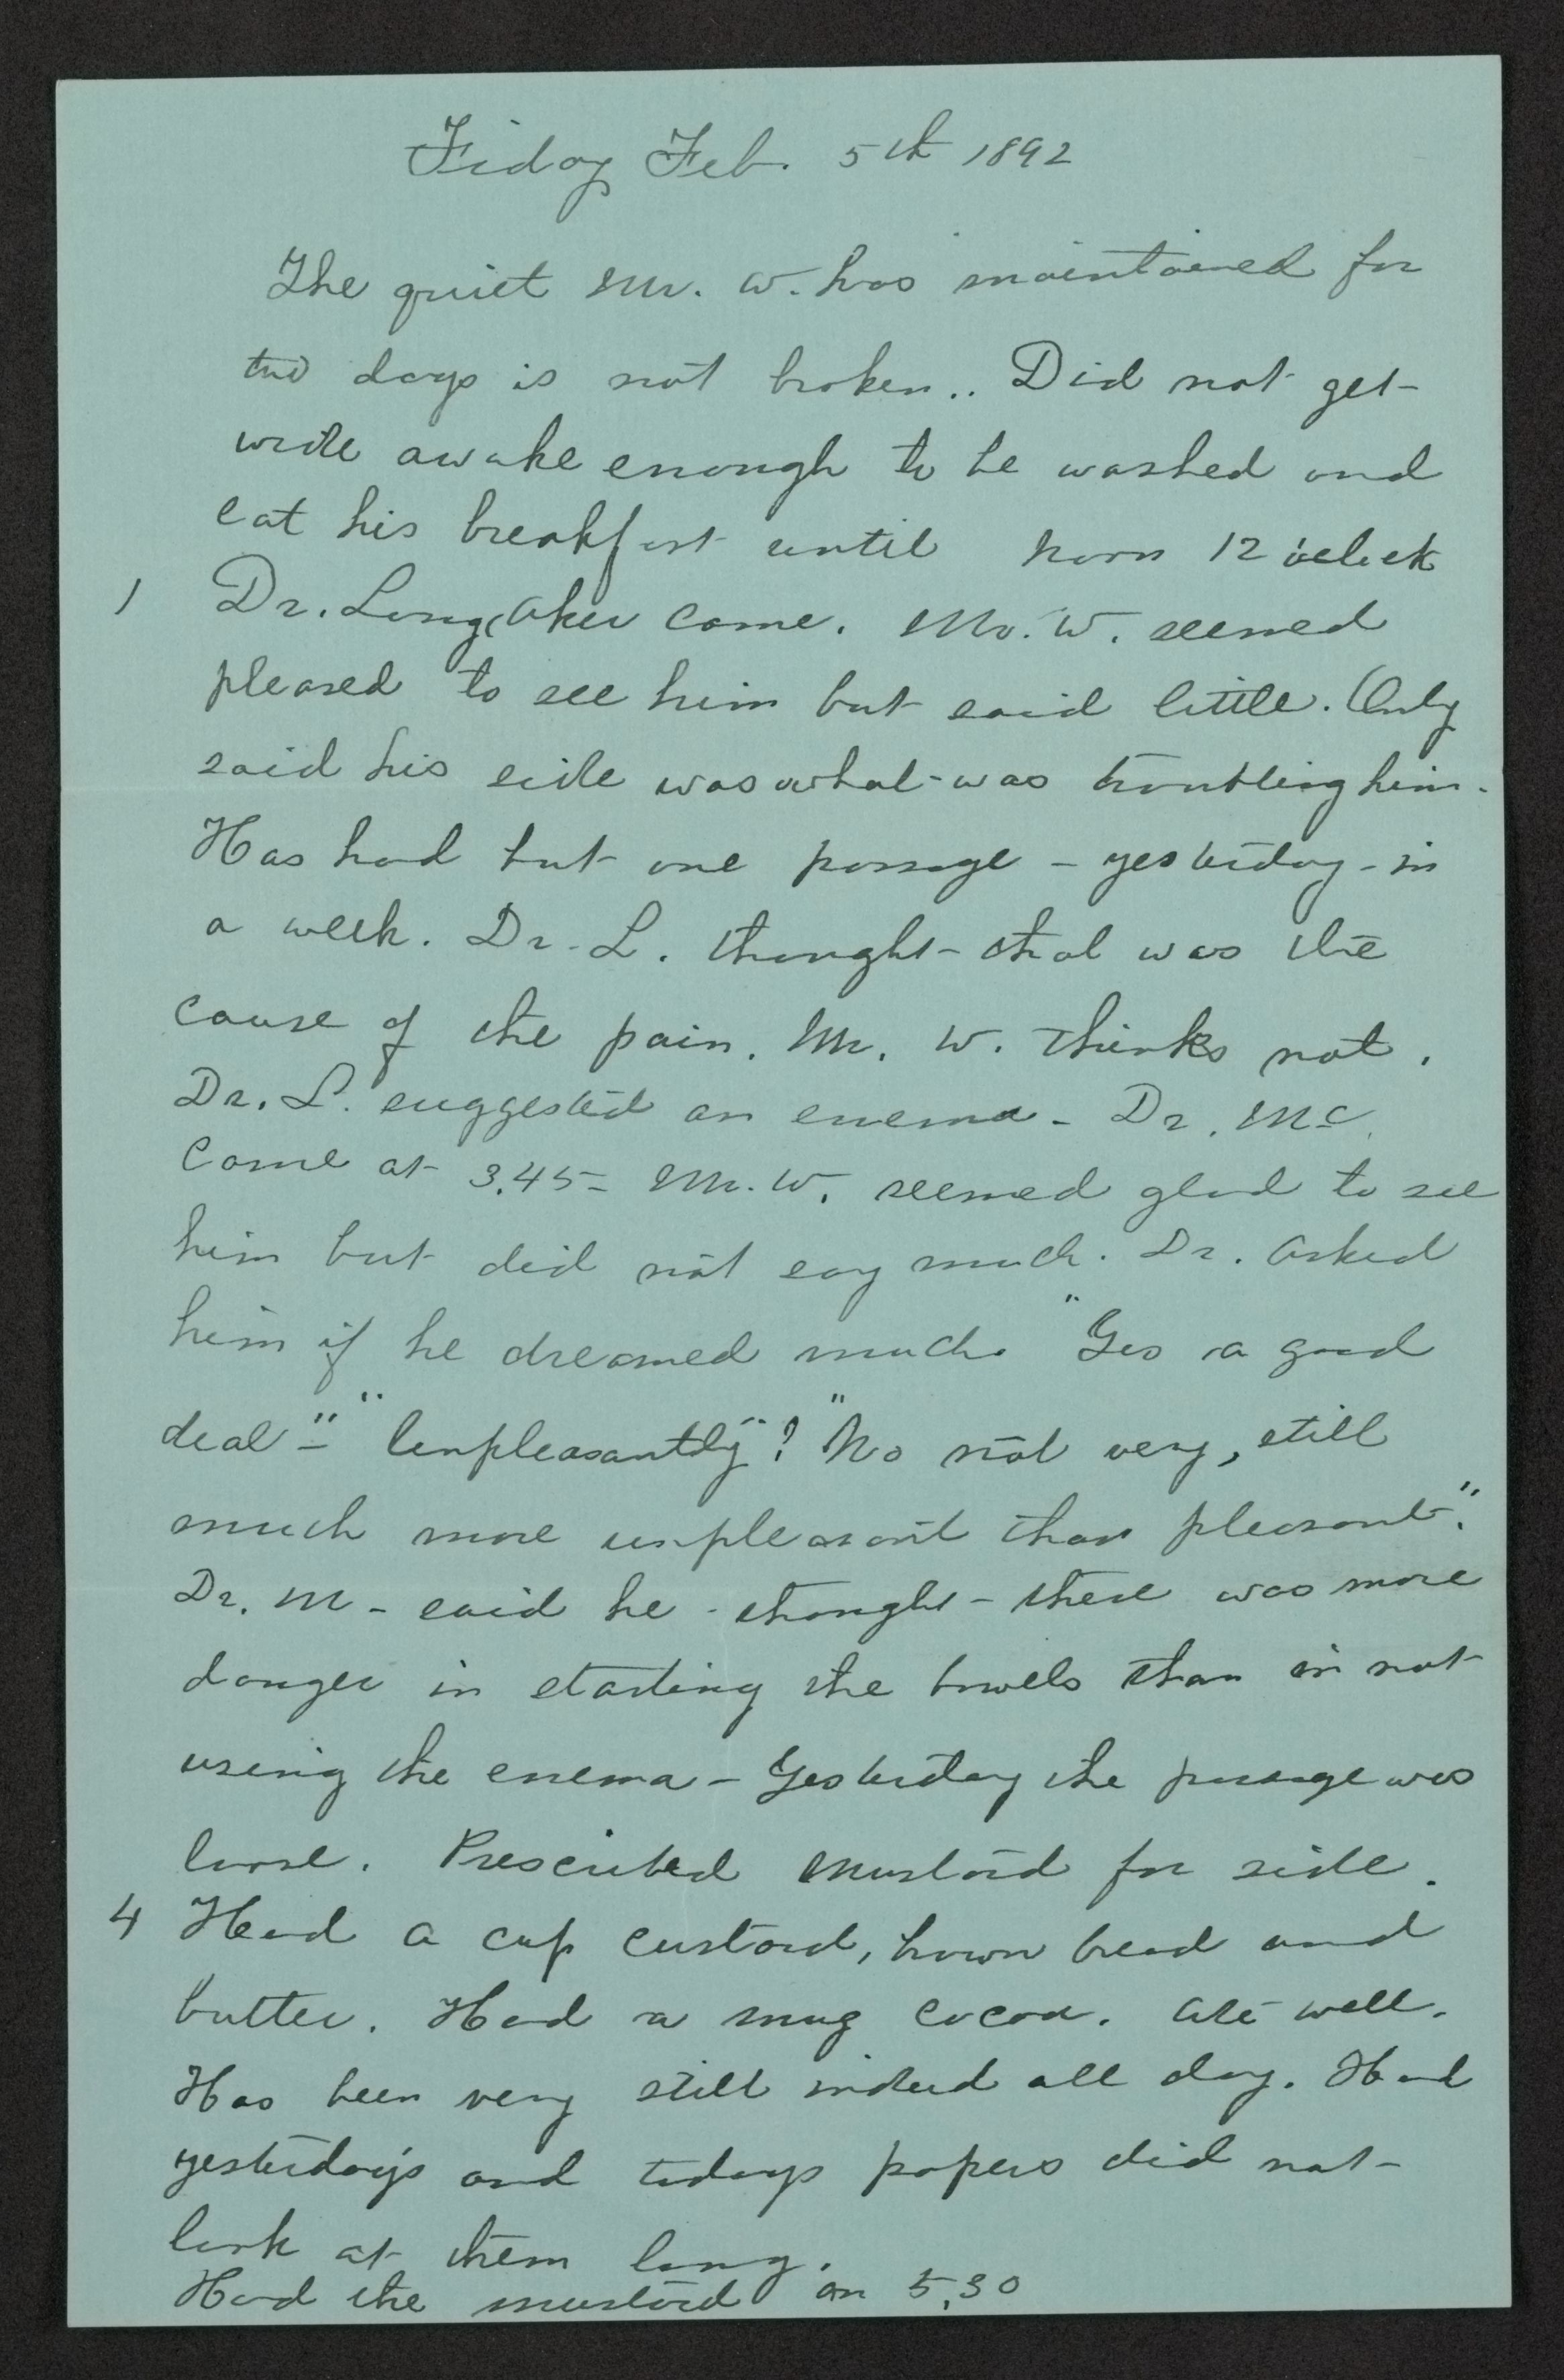 Friday Feb. 5th 1892
The quiet Mr. W. has maintained for
two days is not broken.. Did not get
wide awake enough to be washed and
eat his breakfast until noon 12 o'clock
1 Dr. Longaker came. Mr. W. seemed
pleased to see him but said little. Only
said his side was what was troubling him.
Has had but one passage - yesterday - in
a week. Dr. L. thought - that was the
cause of the pain. Mr. W. thinks not.
Dr. L. suggested an enema - Dr. Mc
came at 3.45 - Mr. W. seemed glad to see
him but did not say much. Dr. asked
him if he dreamed much. "Yes a good
deal" - "Unpleasantly"? "No not very, still
much more unpleasant than pleasant".
Dr. M - said he thought - there was more
danger in starting the bowels than in not
using the enema - Yesterday the passage was
loose. Prescribed mustard for side.
4 Had a cup custard, brown bread and
butter. Had a mug cocoa. Ate well.
Has been very still indeed all day. Had
yesterday's and todays papers did not
look at them long.
Had the mustard on 5.30